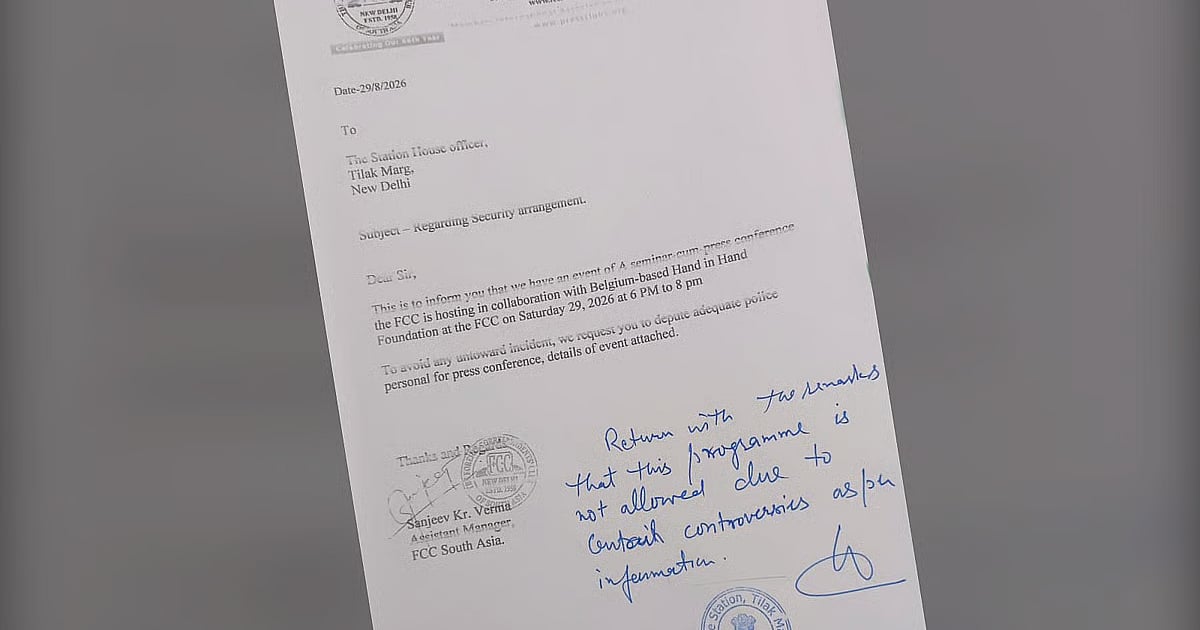 NEW DELHI
ESTD. 1958
OF SOUTH ASIA
Celebrating Our 68th Year
www.pressclubs.org
Date-29/8/2026
To
The Station House officer,
Tilak Marg,
New Delhi
Subject – Regarding Security arrangement.
Dear Sir,
This is to inform you that we have an event of A seminar-cum-press conference
the FCC is hosting in collaboration with Belgium-based Hand in Hand
Foundation at the FCC on Saturday 29, 2026 at 6 PM to 8 pm
To avoid any untoward incident, we request you to depute adequate police
personal for press conference, details of event attached.
Thanks and Regards
FCC
NEW DELHI
ESTD. 1958
OF SOUTH ASIA
Sanjeev Kr. Verma
Assistant Manager,
FCC South Asia.
Return with the remarks
that this programme is
not allowed due to
controversies as per
information.
Station, Tilak